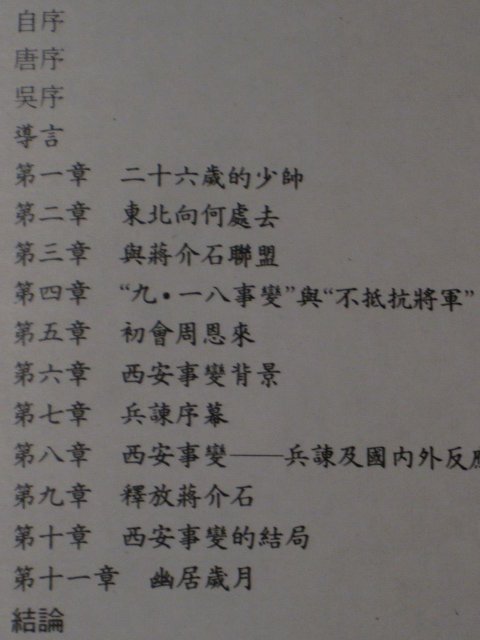 自序
唐序
吳序
導言
第一章 二十六歲的少帥
第二章 東北向何處去
第三章 與蔣介石聯盟
第四章 “九·一八事變”與“不抵抗將軍”
第五章 初會周恩來
第六章 西安事變背景
第七章 兵諫序幕
第八章 西安事變——兵諫及國內外反應
第九章 釋放蔣介石
第十章 西安事變的結局
第十一章 幽居歲月
結論